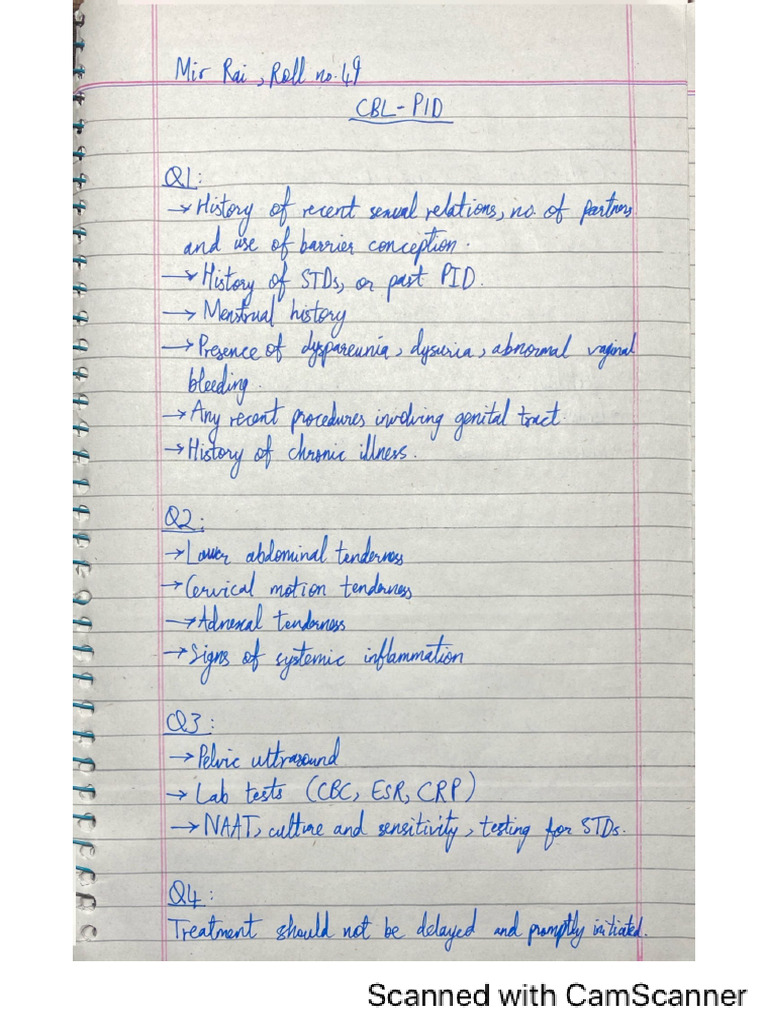 Mir Rai, Roll no. 49
CBL - PID
Q1:
→ History of recent sexual relations, no. of partners
and use of barrier conception.
→ History of STDs, or past PID.
→ Menstrual history
→ Presence of dyspareunia, dysuria, abnormal vaginal
bleeding.
→ Any recent procedures involving genital tract.
→ History of chronic illness.
Q2:
→ Lower abdominal tenderness
→ Cervical motion tenderness
→ Adnexal tenderness
→ Signs of systemic inflammation
Q3:
→ Pelvic ultrasound
→ Lab tests (CBC, ESR, CRP)
→ NAAT, culture and sensitivity, testing for STDs.
Q4:
Treatment should not be delayed and promptly initiated.
Scanned with CamScanner